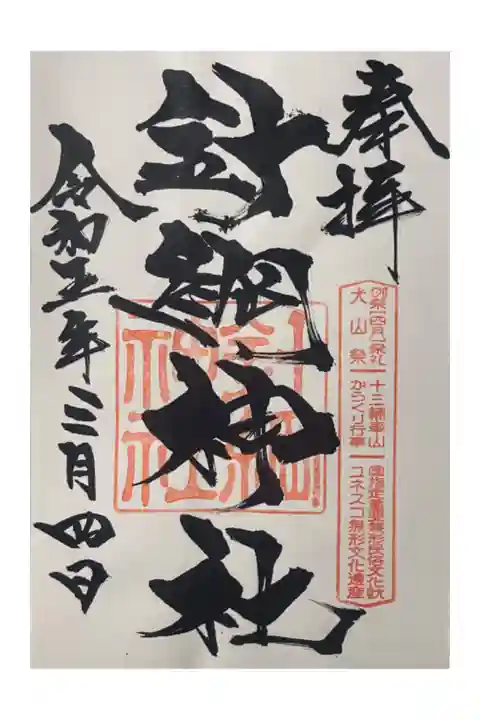 奉拝
例祭(四月)祭礼
犬山祭
十三輛車山
からくり行事
国指定重要無形民俗文化財
ユネスコ無形文化遺産
針綱神社
針綱神社
令和五年三月四日